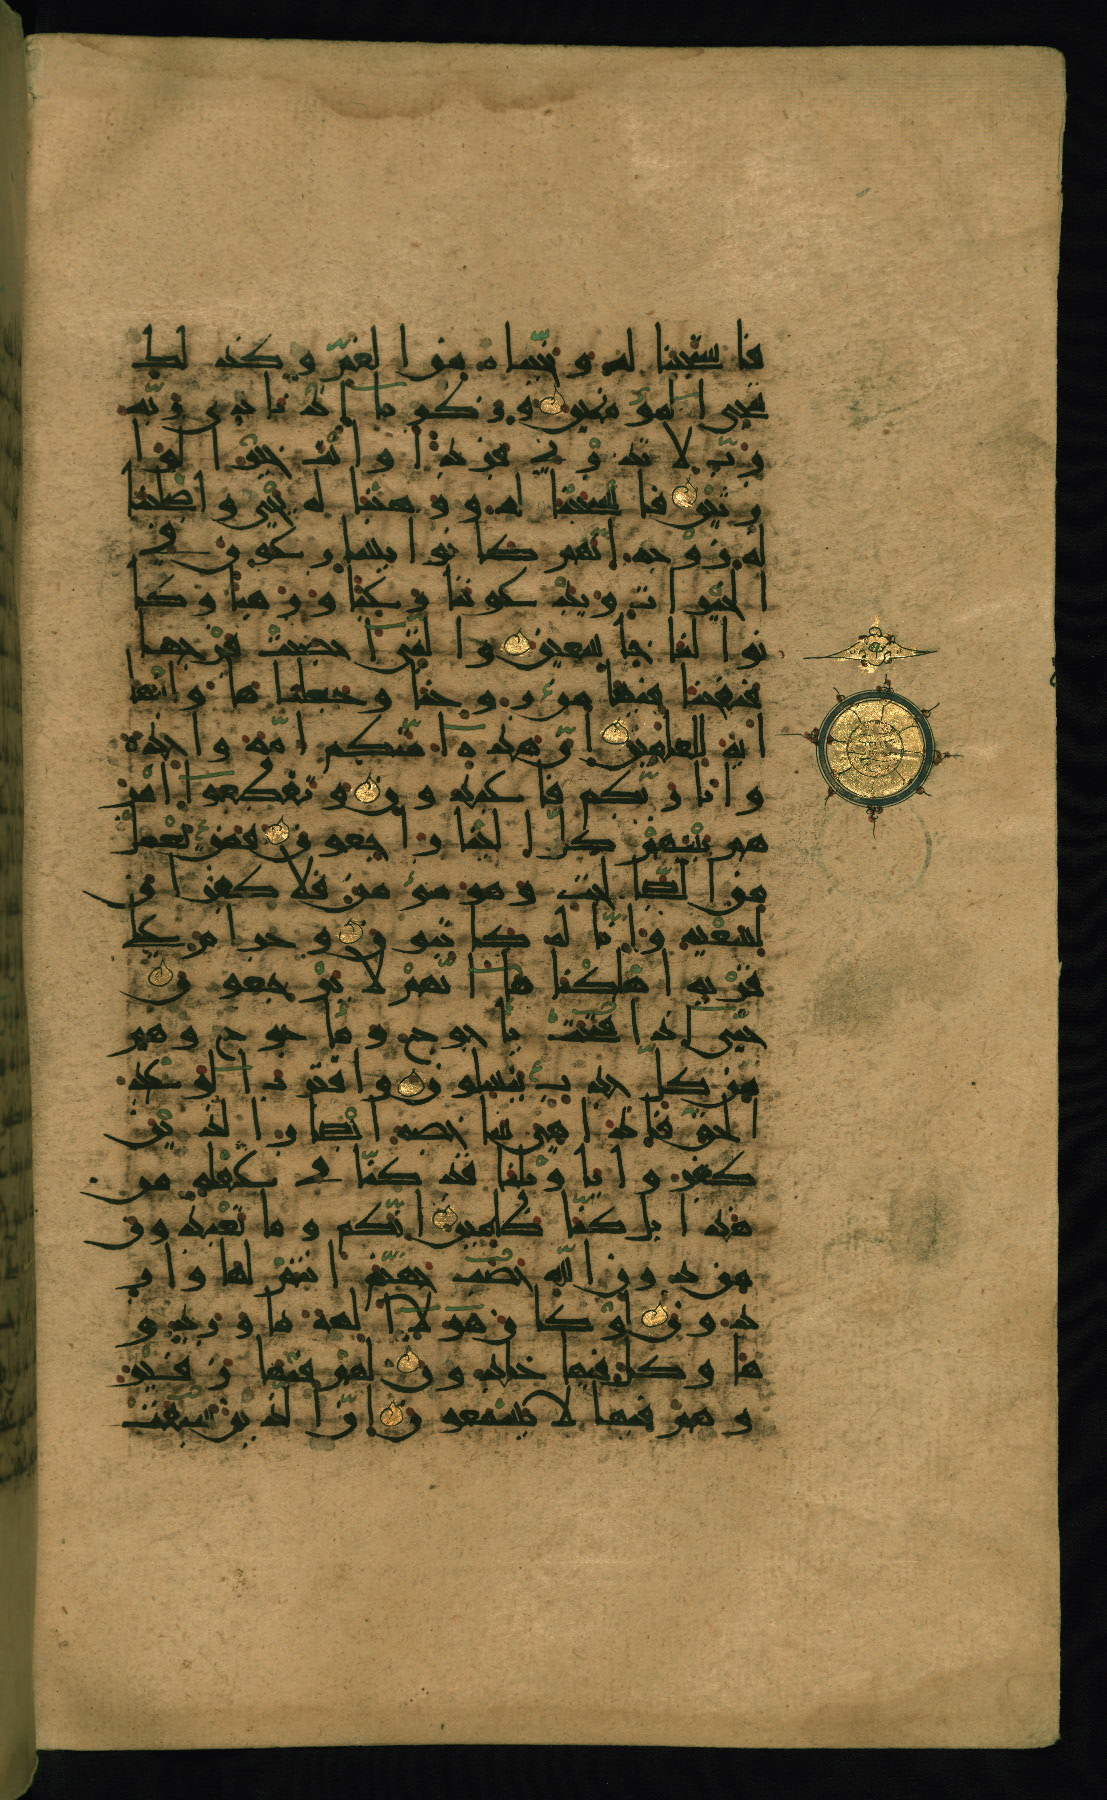 فاستجبنا له ونجيناه من الغم وكذلك
ننجي المؤمنين وزكريا إذ نادى ربه
رب لا تذرني فردا وأنت خير الوا
رثين فاستجبنا له ووهبنا له يحيى وأصلحنا
له زوجه إنهم كانوا يسارعون في
الخيرات ويدعوننا رغبا ورهبا وكا
نوا لنا خاشعين والتي أحصنت فرجها
فنفخنا فيها من روحنا وجعلناها وابنها
آية للعالمين إن هذه أمتكم أمة واحدة
وأنا ربكم فاعبدون وتقطعوا أمر
هم بينهم كل إلينا راجعون فمن يعمل
من الصالحات وهو مؤمن فلا كفران
لسعيه وإنا له كاتبون وحرام على
قرية أهلكناها أنهم لا يرجعون
حتى إذا فتحت يأجوج ومأجوج وهم
من كل حدب ينسلون واقترب الوعد
الحق فإذا هي شاخصة أبصار الذين
كفروا يا ويلنا قد كنا في غفلة من
هذا بل كنا ظالمين إنكم وما تعبدون
من دون الله حصب جهنم أنتم لها وار
دون لو كان هؤلاء آلهة ما وردو
ها وكل فيها خالدون لهم فيها زفير
وهم فيها لا يسمعون إن الذين سبقت